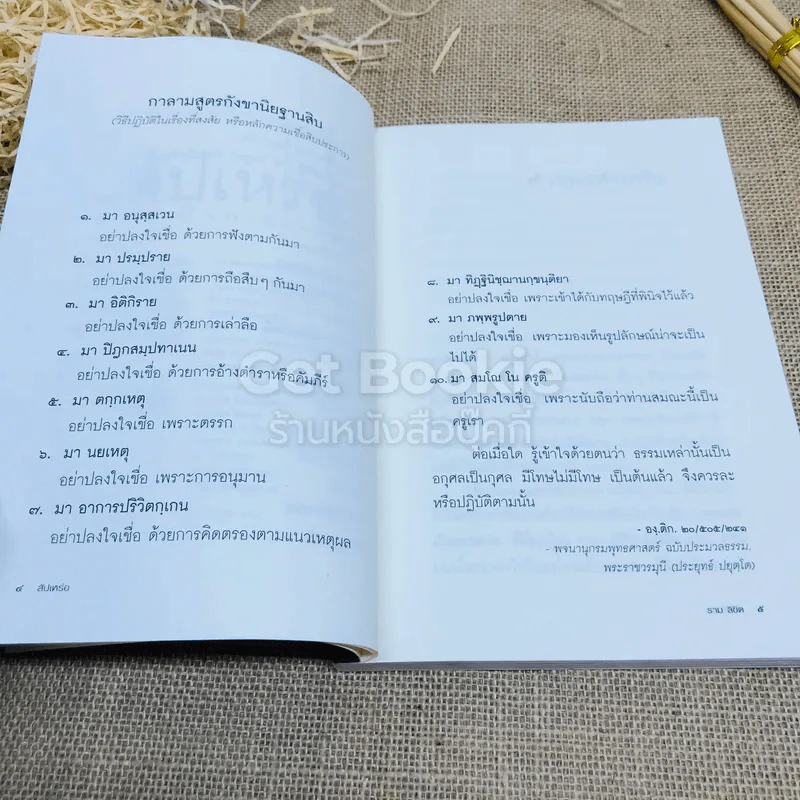 กาลามสูตรกังขานิยฐานสิบ
(วิธีปฏิบัติในเรื่องที่สงสัย หรือหลักความเชื่อสิบประการ)
๑. มา อนุสฺสเวน
อย่าปลงใจเชื่อ ด้วยการฟังตามกันมา
๒. มา ปรมฺปราย
อย่าปลงใจเชื่อ ด้วยการถือสืบๆ กันมา
๓. มา อิติกิราย
อย่าปลงใจเชื่อ ด้วยการเล่าลือ
๔. มา ปิฎกสมฺปทาเนน
อย่าปลงใจเชื่อ ด้วยการอ้างตำราหรือคัมภีร์
๕. มา ตกฺกเหตุ
อย่าปลงใจเชื่อ เพราะตรรก
๖. มา นยเหตุ
อย่าปลงใจเชื่อ เพราะการอนุมาน
๗. มา อาการปริวิตกฺเกน
อย่าปลงใจเชื่อ ด้วยการคิดตรองตามแนวเหตุผล
๔ สัปเหร่อ
๘. มา ทิฏฺฐินิชฺฌานกฺขนฺติยา
อย่าปลงใจเชื่อ เพราะเข้าได้กับทฤษฎีที่พินิจไว้แล้ว
๙. มา ภพฺพรูปตาย
อย่าปลงใจเชื่อ เพราะมองเห็นรูปลักษณ์น่าจะเป็น
ไปได้
๑๐. มา สมโณ โน ครูติ
อย่าปลงใจเชื่อ เพราะนับถือว่าท่านสมณะนี้เป็น
ครูเรา
ต่อเมื่อใด รู้เข้าใจด้วยตนว่า ธรรมเหล่านั้นเป็น
อกุศลเป็นกุศล มีโทษไม่มีโทษ เป็นต้นแล้ว จึงควรละ
หรือปฏิบัติตามนั้น
- องฺ.ติก. ๒๐/๕๐๕/๒๔๑
- พจนานุกรมพุทธศาสตร์ ฉบับประมวลธรรม,
พระราชวรมุนี (ประยุทธ์ ปยุตฺโต)
ราม ลิขิต ๕
Get Bookie
ร้านหนังสือบุ๊คกี้